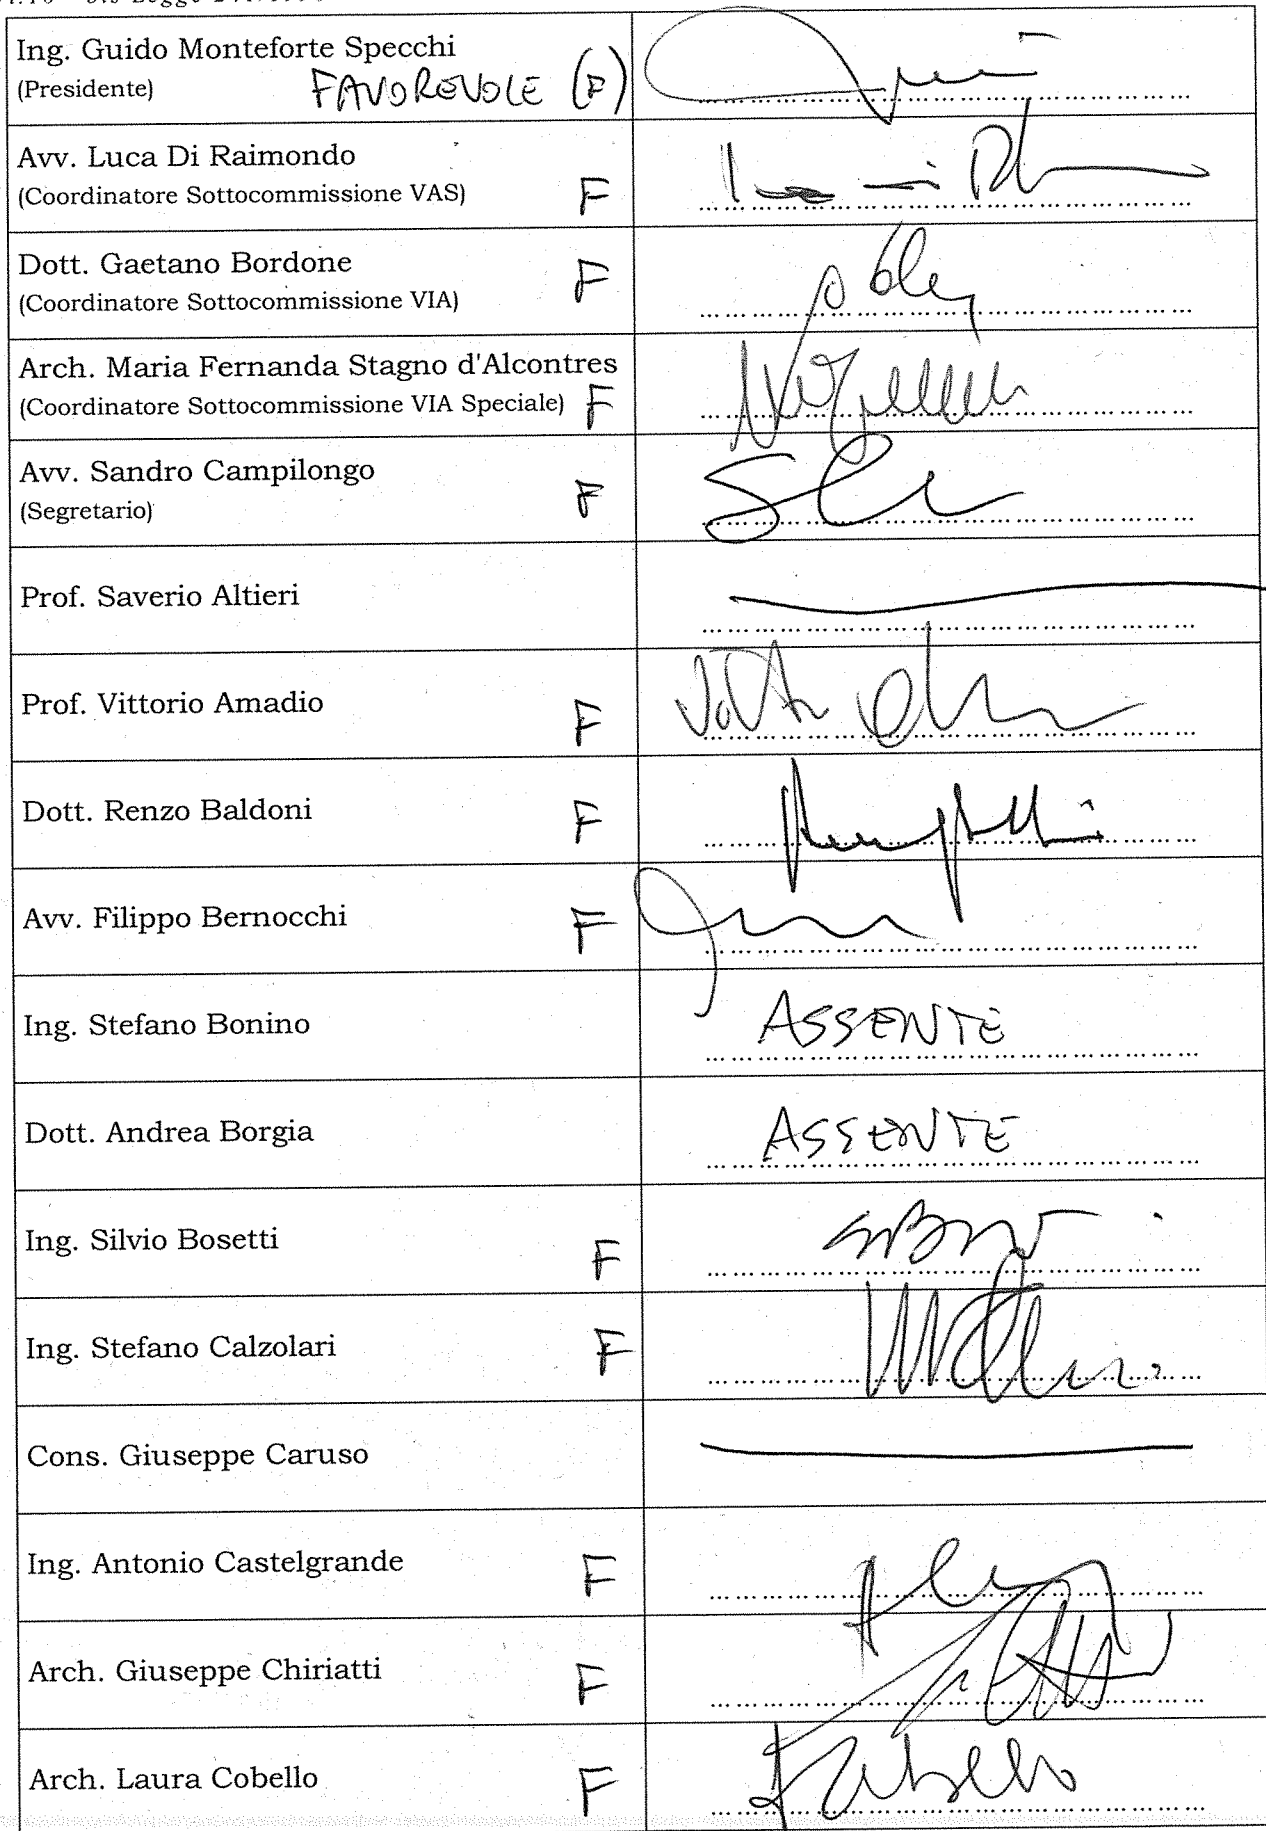 Ing. Guido Monteforte Specchi
(Presidente) FAVOREVOLE (F)
Avv. Luca Di Raimondo
(Coordinatore Sottocommissione VAS) F
Dott. Gaetano Bordone F
(Coordinatore Sottocommissione VIA)
Arch. Maria Fernanda Stagno d'Alcontres
(Coordinatore Sottocommissione VIA Speciale) F
Avv. Sandro Campilongo
(Segretario) F
Prof. Saverio Altieri
Prof. Vittorio Amadio F
Dott. Renzo Baldoni F
Avv. Filippo Bernocchi F
Ing. Stefano Bonino ASSENTE
Dott. Andrea Borgia ASSENTE
Ing. Silvio Bosetti F
Ing. Stefano Calzolari F
Cons. Giuseppe Caruso
Ing. Antonio Castelgrande F
Arch. Giuseppe Chiriatti F
Arch. Laura Cobello F